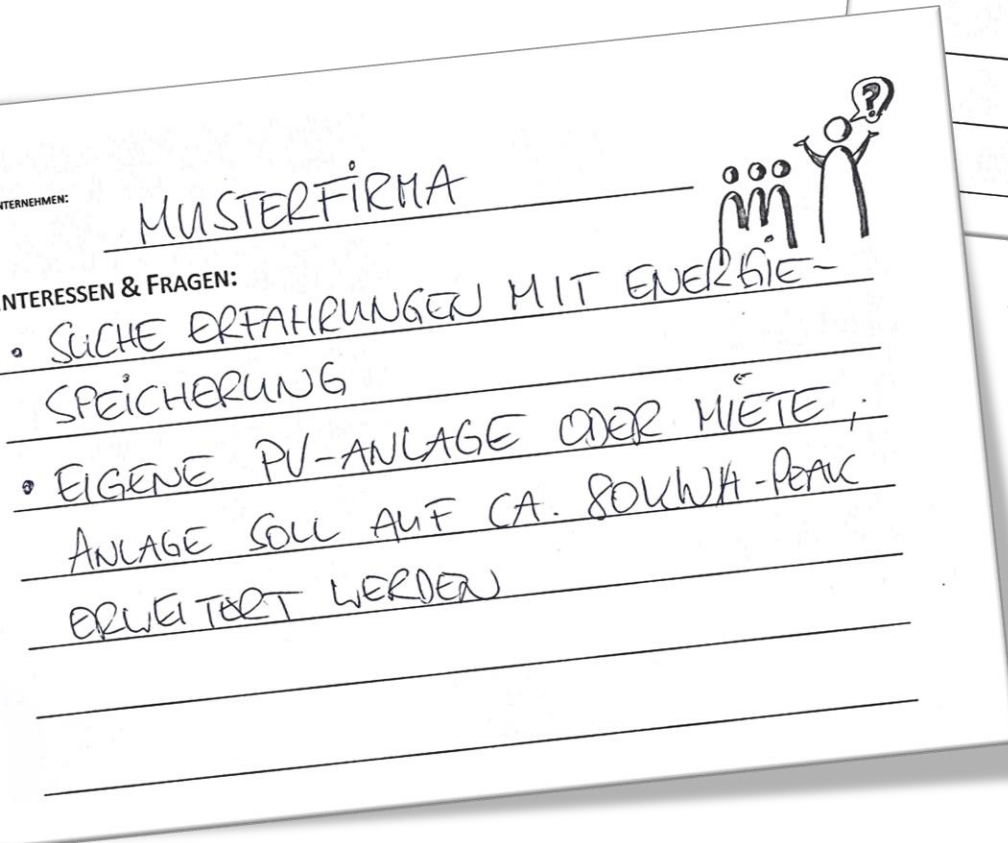 NTERNEHMEN: MUSTERFIRMA
NTERESSEN & FRAGEN:
• SUCHE ERFAHRUNGEN MIT ENERGIE-
SPEICHERUNG
• EIGENE PV-ANLAGE ODER MIETE,
ANLAGE SOLL AUF CA. 80KWH-PEAK
ERWEITERT WERDEN
?